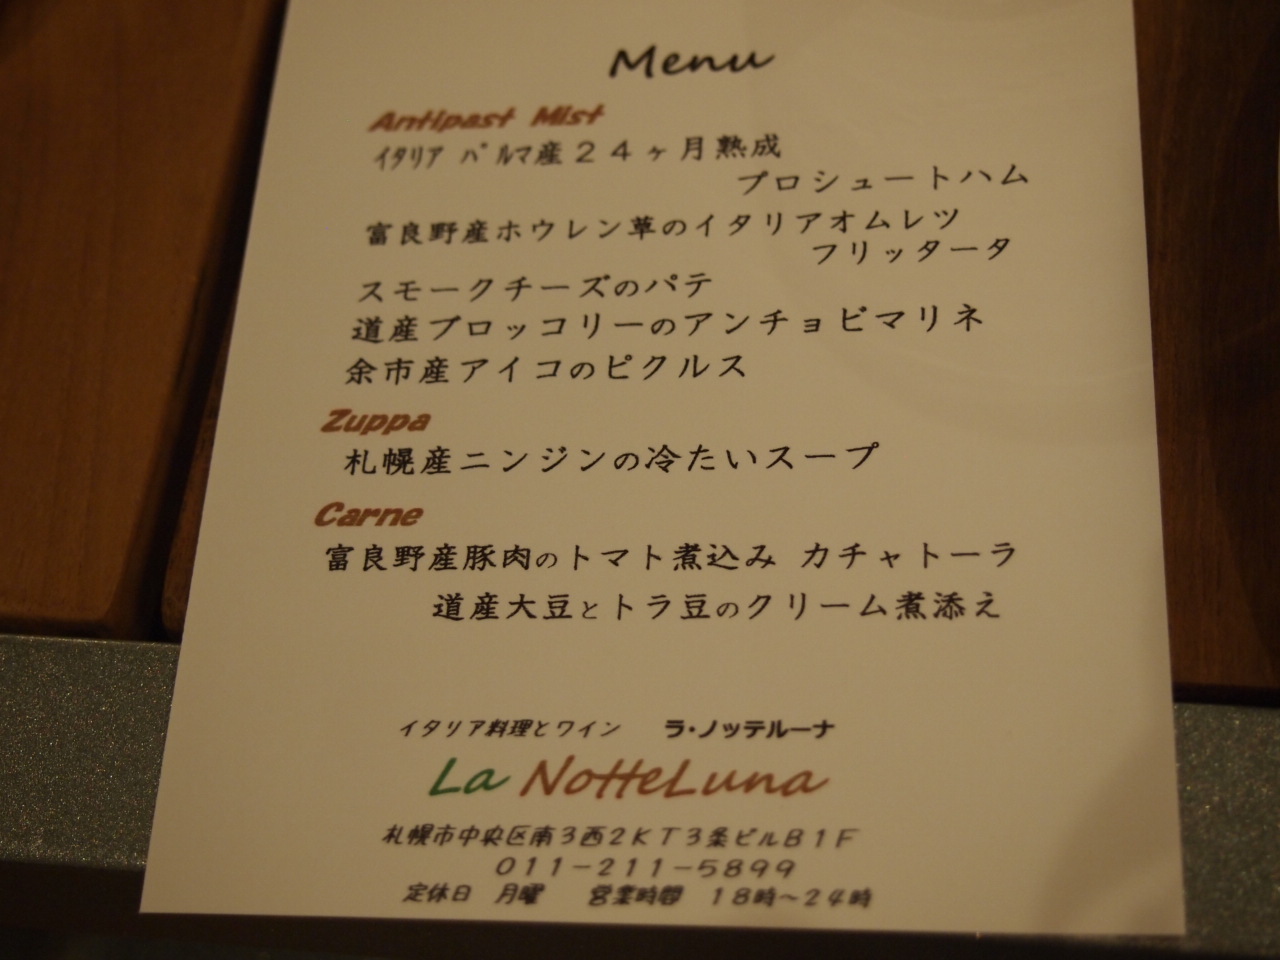 Menu
Antipast Mist
イタリア パルマ産２４ヶ月熟成
プロシュートハム
富良野産ホウレン草のイタリアオムレツ
フリッタータ
スモークチーズのパテ
道産ブロッコリーのアンチョビマリネ
余市産アイコのピクルス
Zuppa
札幌産ニンジンの冷たいスープ
Carne
富良野産豚肉のトマト煮込み カチャトーラ
道産大豆とトラ豆のクリーム煮添え
イタリア料理とワイン ラ・ノッテルーナ
La NotteLuna
札幌市中央区南３西２ＫＴ３条ビルＢ１Ｆ
０１１－２１１－５８９９
定休日 月曜 営業時間 １８時～２４時